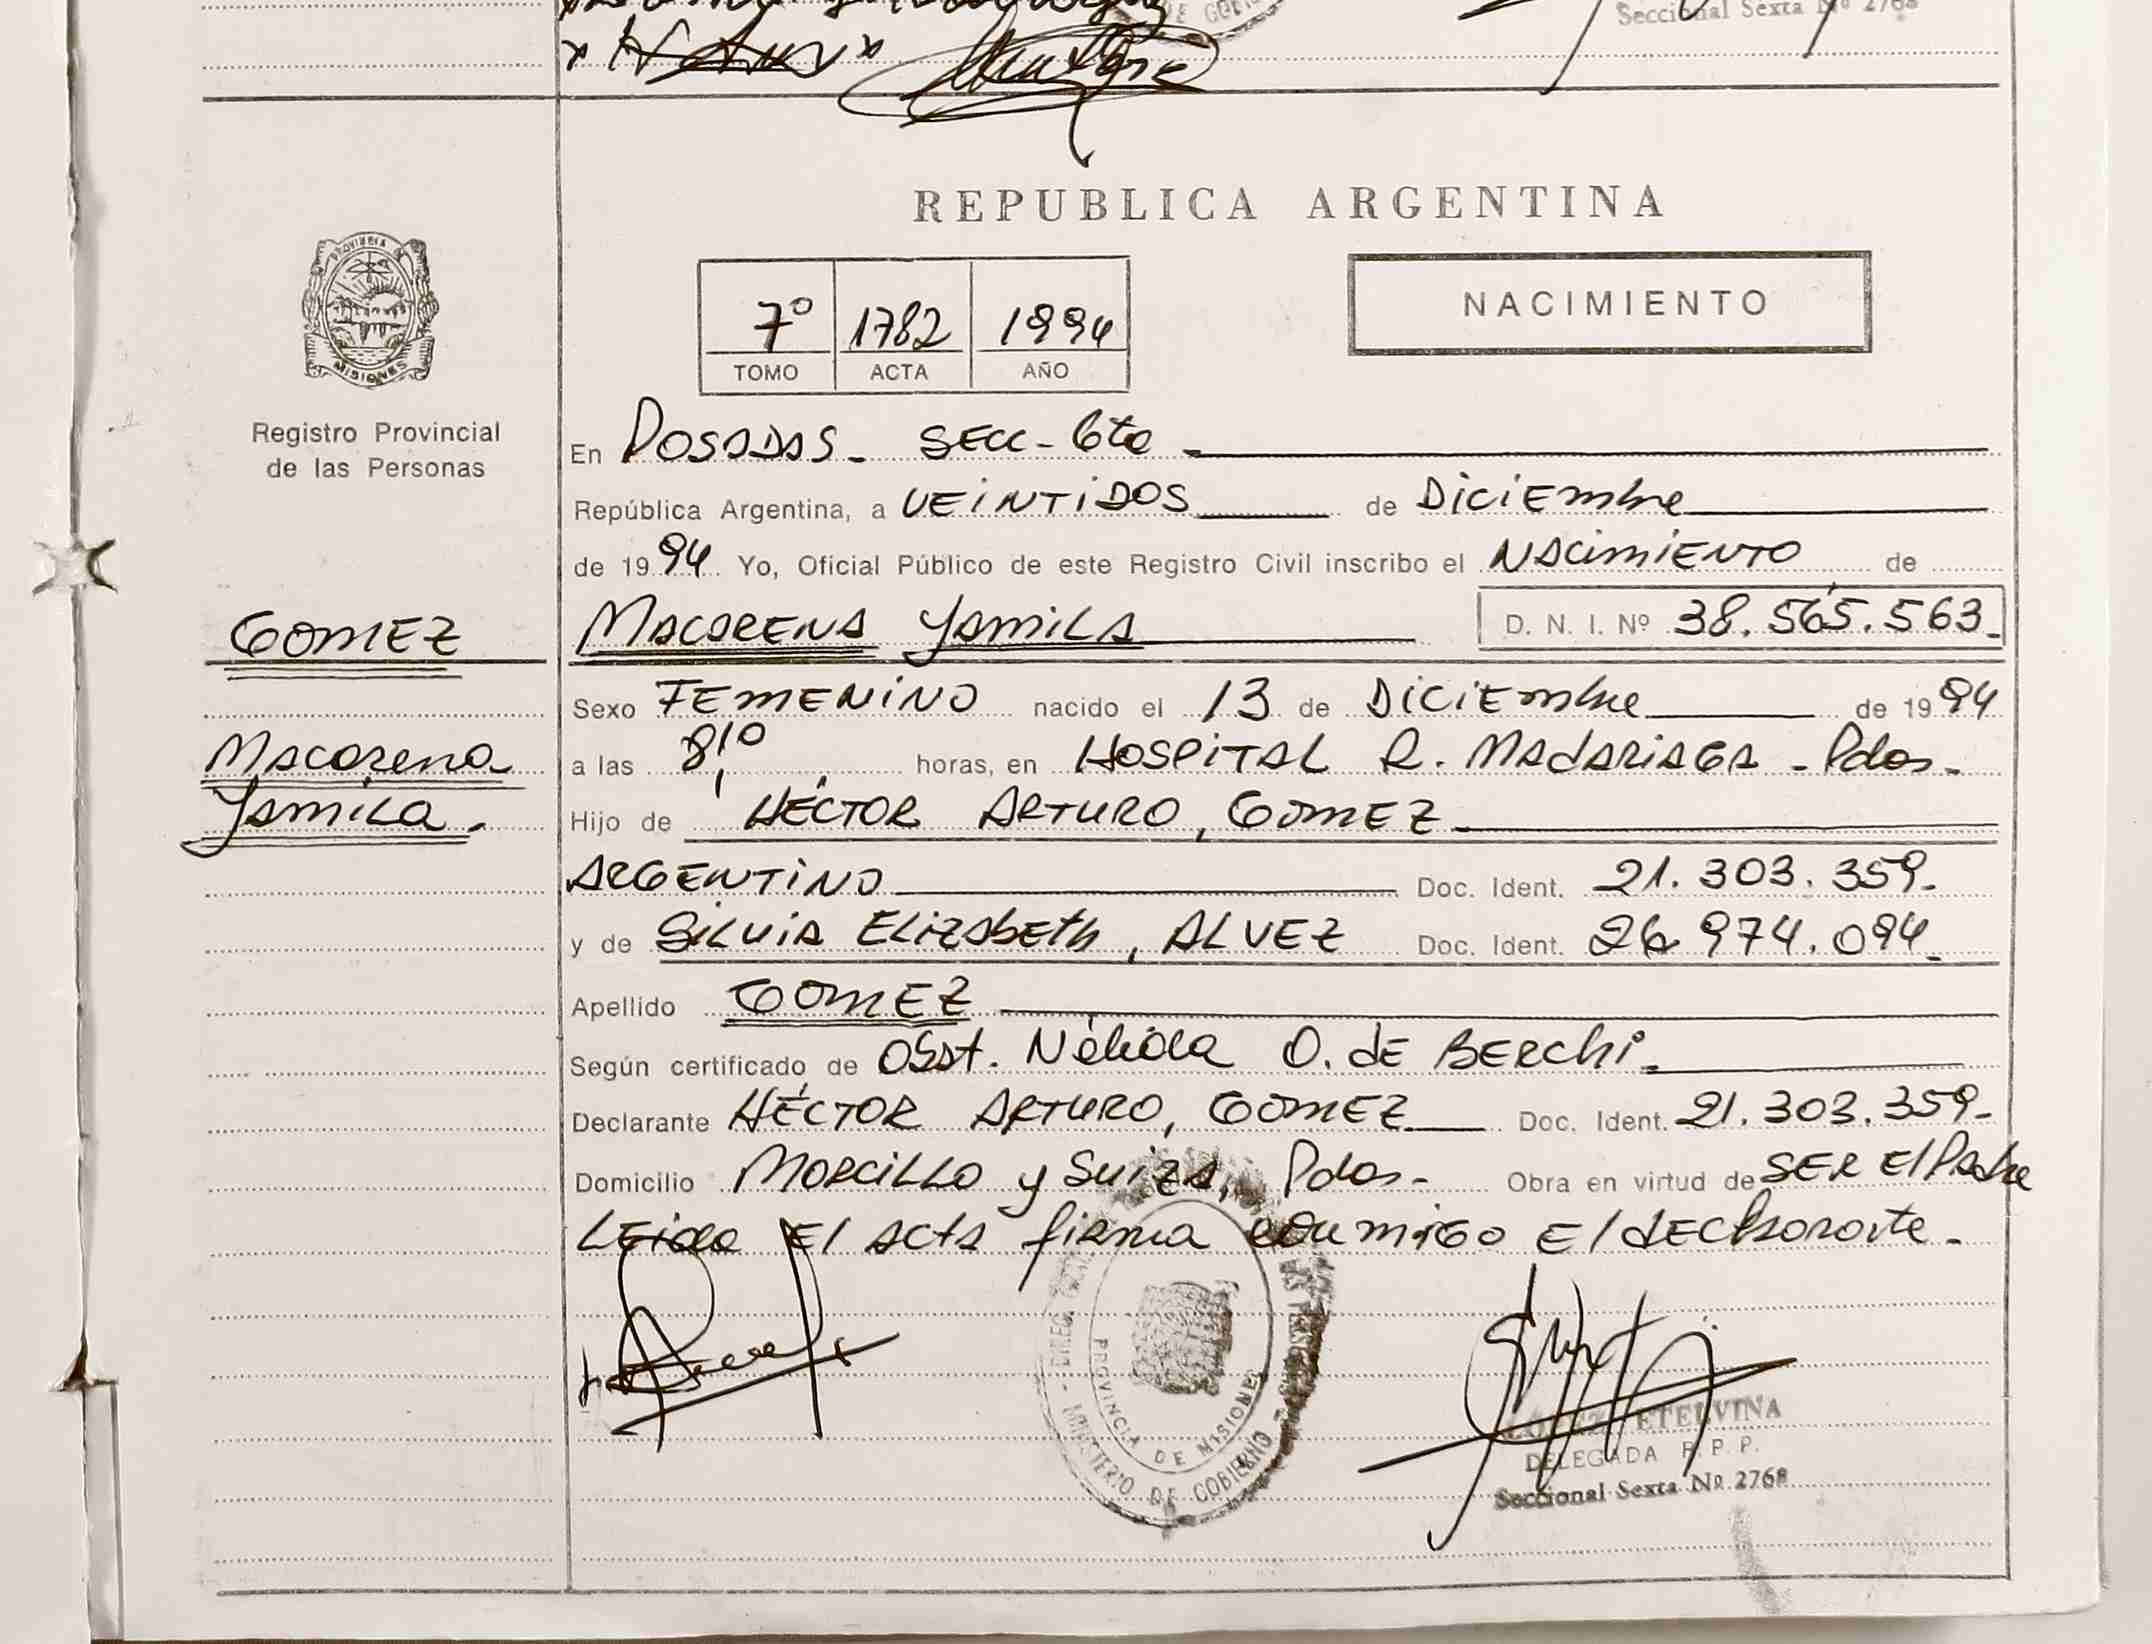 Seccional Sexta Nº 2768
REPUBLICA ARGENTINA
PROVINCIA DE MISIONES
Registro Provincial
de las Personas
7º 1782 1994
TOMO ACTA AÑO
NACIMIENTO
En POSADAS - SECC - 6ta -
República Argentina, a VEINTIDOS de DICIEMBRE
de 1994 Yo, Oficial Público de este Registro Civil inscribo el NACIMIENTO de
GOMEZ
MACARENA YAMILA D. N. I. Nº 38.565.563
Macarena
Yamila.
Sexo FEMENINO nacido el 13 de DICIEMBRE de 1994
a las 8,10 horas, en HOSPITAL R. MADARIAGA - Pdas -
Hijo de HÉCTOR ARTURO, GOMEZ
ARGENTINO Doc. Ident. 21.303.359.
y de SILVIA ELIZABETH, ALVEZ Doc. Ident. 26.974.094
Apellido GOMEZ
Según certificado de Obst. Nélida O. DE BERCHI.
Declarante HÉCTOR ARTURO, GOMEZ Doc. Ident. 21.303.359-
Domicilio MORCILLO y SUIZA, Pdas - Obra en virtud de SER El Padre
LEIDA El ACTA firma conmigo El dEClarante.
MINISTERIO DE GOBIERNO
PROVINCIA DE MISIONES
ETELVINA
DELEGADA R. P. P.
Seccional Sexta Nº 2768